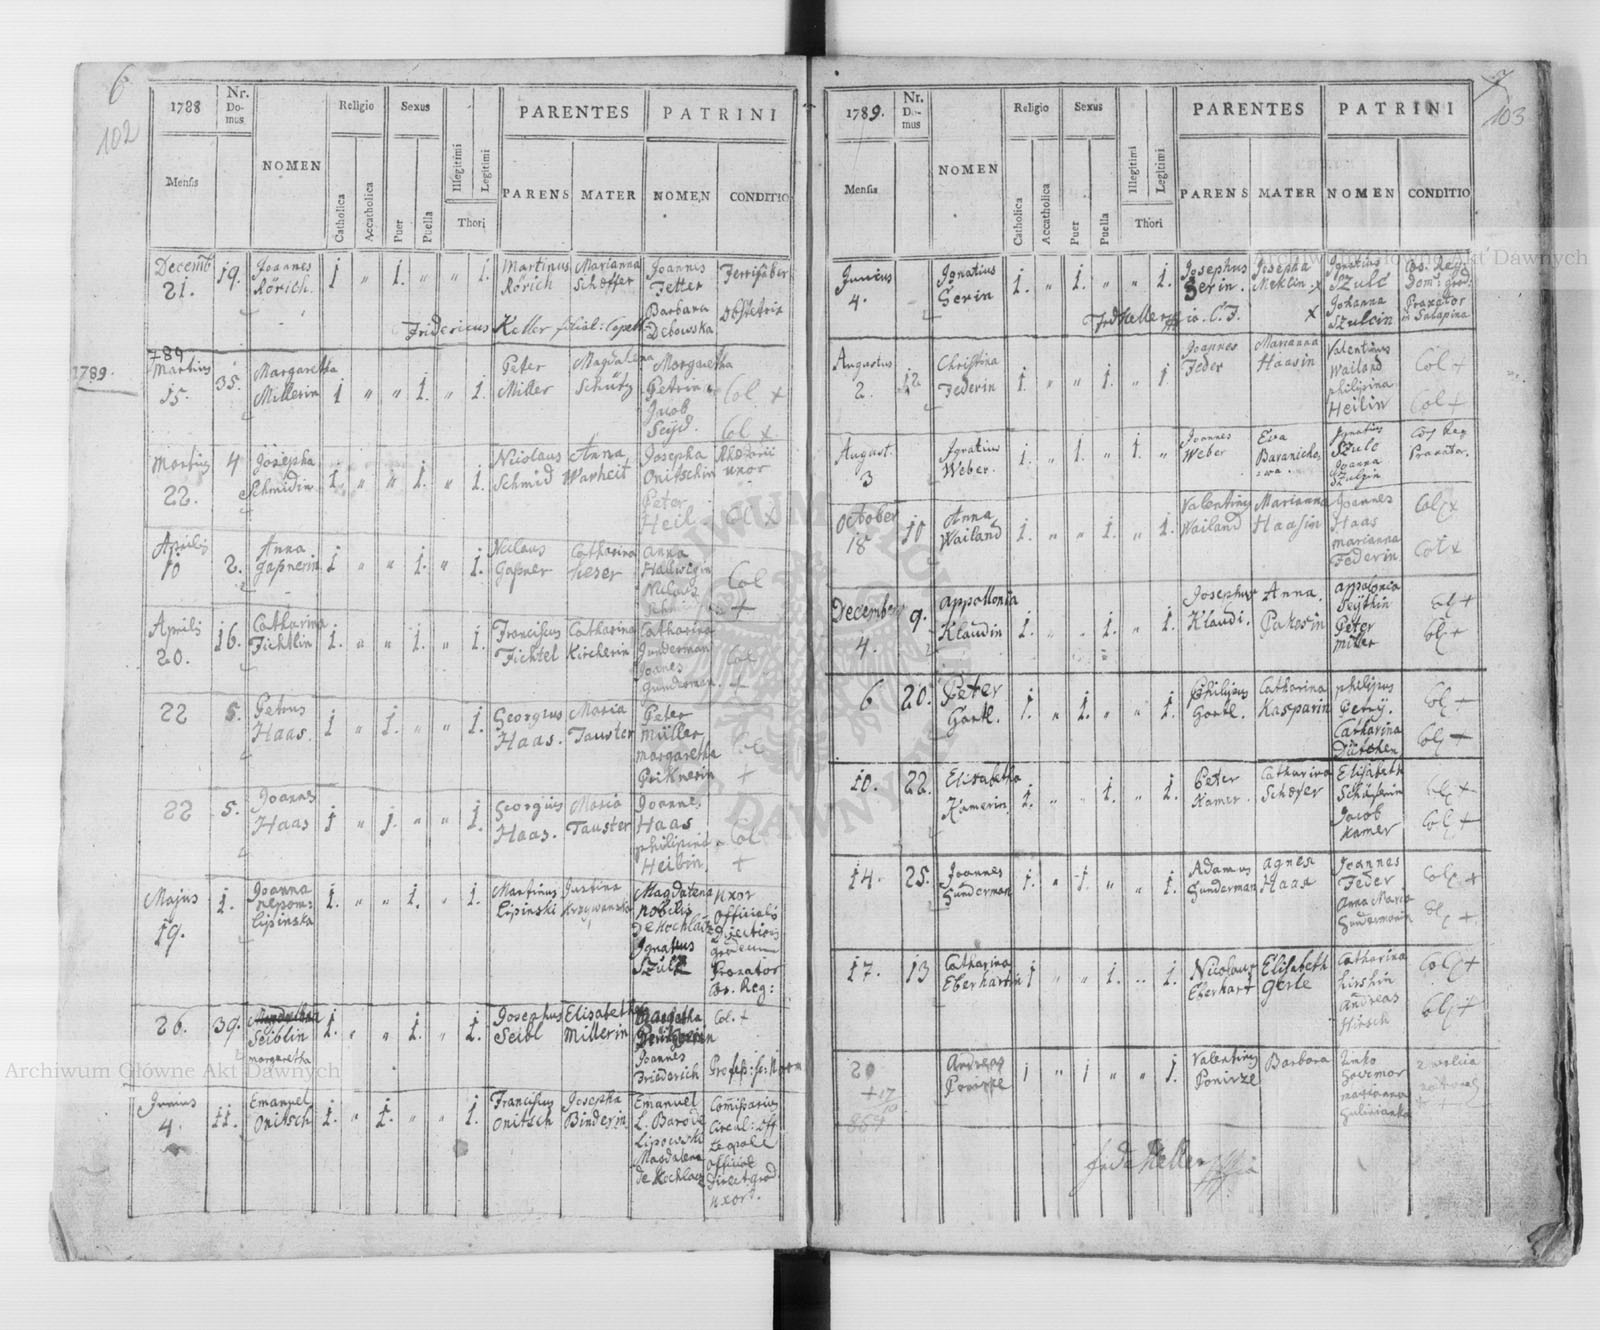 6
102
1788
Nr. Domus
NOMEN
Religio
Sexus
PARENTES
PATRINI
Mensis
Catholica
Accatholica
Puer
Puella
Illegitimi
Legitimi
Thori
PARENS
MATER
NOMEN
CONDITIO
Decemb 19. Joannes 1 " 1. " " 1. Martinus Marianna Joannes
21. Rörich. Rörich Scheffer Fetter
Barbara Obstetrix
Fridericus Keller filial: Capell: Debowska
789
1789.
Martius 35. Margaretha 1 " " 1. " 1. Peter Magdalena Margaretha
15. Millerin Miller Schütz Petrin Col x
Jacob
Seyd. Col x
Martius 4 Josepha 1 " " 1. " 1. Nicolaus Anna Josepha
22. Schmidin Schmid Warheit Onitschin uxor
Peter
Heil Col x
Aprilis 2. Anna 1 " " 1. " 1. Catharina Anna
10 Gapnerin Gapner Heser Col
+
Aprilis 16. Catharina 1. " " 1. " 1. Franciscus Catharina Catharina
20. Fichtlin Fichtel Kircherin Gunderman Col
Joanes
Gunderman. +
22 5. Petrus 1 " 1. " " 1. Georgius Maria Peter
Haas. Haas. Tauster Müller
Margaretha Col
Priknerin +
22 5. Joannes 1 " 1. " " 1. Georgius Maria Joannes
Haas Haas. Tauster Haas
philipina Col
+
Majus 1. Joanna 1. " " 1. " 1. Martinus Justina Magdalena uxor
19. nepom: Lipinski Krzywanska nobilis Officialis
Lipinska
Ignatius
Szulz Praxator
Co. Reg:
26. 39. Seiblin 1. " " 1. " 1. Josephus Elisabetha Col. +
Margaretha Seibl Millerin
Joannes
Friederich
Junius 11. Emanuel 1. " 1. " " 1. Franciscus Josepha Emanuel Comissarius
4. Onitsch Onitsch Binderin L. Barode
Lipowski
Magdalena official
de Kochlacz Direct: grod
uxor.
7
103
1789.
Nr. Domus
NOMEN
Religio
Sexus
PARENTES
PATRINI
Mensis
Catholica
Accatholica
Puer
Puella
Illegitimi
Legitimi
Thori
PARENS
MATER
NOMEN
CONDITIO
Junius Ignatius 1. " 1. " " 1. Josephus Josepha Ignatius Co. Reg:
4. Serin Serin. Meklin. x Szulc Dom: grod:
Johanna Praxator
Frd Keller Szulcin in Salapina
Augustus 12 Christina 1. " " 1. " 1. Joannes Marianna Valentinus Col +
2. Federin Feder Haasin Wailand
philipina
Heilin Col +
August. Ignatius 1. " 1. " 1. " Joannes Eva Ignatius
3 Weber. Weber Baranicho- Szulc Praxator.
wa Joanna
Szulzin
October 10 Anna 1. " " 1. " 1. Valentinus Marianna Joannes Col x
18 Wailand Wailand Haasin Haas
marianna
Federin Col x
December 9. Appollonia 1. " " 1. " 1. Josephus Anna. Appolonia Col +
4. Klaudin Klaudi. Pakosin
Peter Col +
Miller
6 20. Peter 1. " 1. " " 1. Philipus Catharina philipus Col +
Gortl. Gortl. Kasparin Petry.
Catharina Col +
10. 22. Elisabetha 1. " " 1. " 1. Peter Catharina Elisabeth Col +
Kamerin Kamer. Schefer Schäferin
Jacob Col +
Kamer
14. 25. Joannes 1. " 1. " " 1. Adamus Agnes Joannes Col +
Gunderman Gunderman Haas Feder
Anna Maria
Gundermanin Col +
17. 13 Catharina 1 " " 1. " 1. Nicolaus Elisabeth Catharina Col +
Eberhartin Eberhart Gerle Hirshin
Andreas Col +
Hirsch
20 Andreas 1 " 1 " " 1. Valentinus Barbara
Ponirze Ponirze
marianna
Frd Keller
Archiwum Główne Akt Dawnych
Archiwum Główne Akt Dawnych